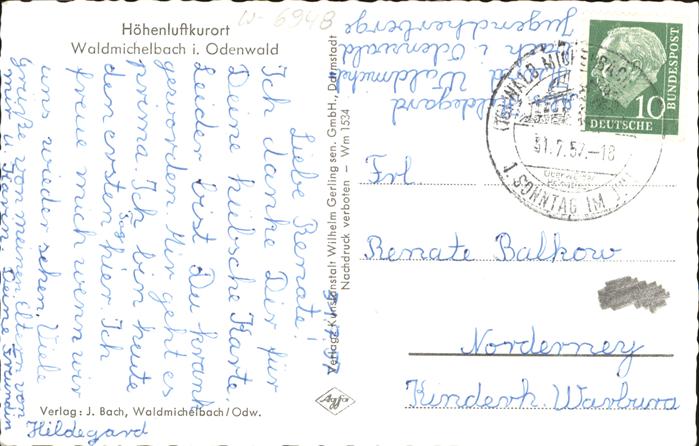 W-6948
Höhenluftkurort
Waldmichelbach i. Odenwald
31.7.57
Liebe Renate!
Ich danke Dir für
Deine hübsche Karte.
Leider bist Du krank
geworden. Mir geht es
prima. Ich bin heute
den ersten Tag hier. Ich
freue mich wenn wir
uns wieder sehen. Viele
Grüße von meinen Eltern von
Deine Freundin
Hildegard
Verlag: J. Bach, Waldmichelbach/Odw.
Verlag: Kunstanstalt Wilhelm Gerling sen. GmbH., Darmstadt
Nachdruck verboten — Wm 1534
Agfa
Hildegard
Wald-Michel
bach i. Odenwald
Jugendherberge
31.7.57.-18
1. SONNTAG IM
10
DEUTSCHE
BUNDESPOST
Frl
Renate Balkow
Norderney
Kinderh. Warburg